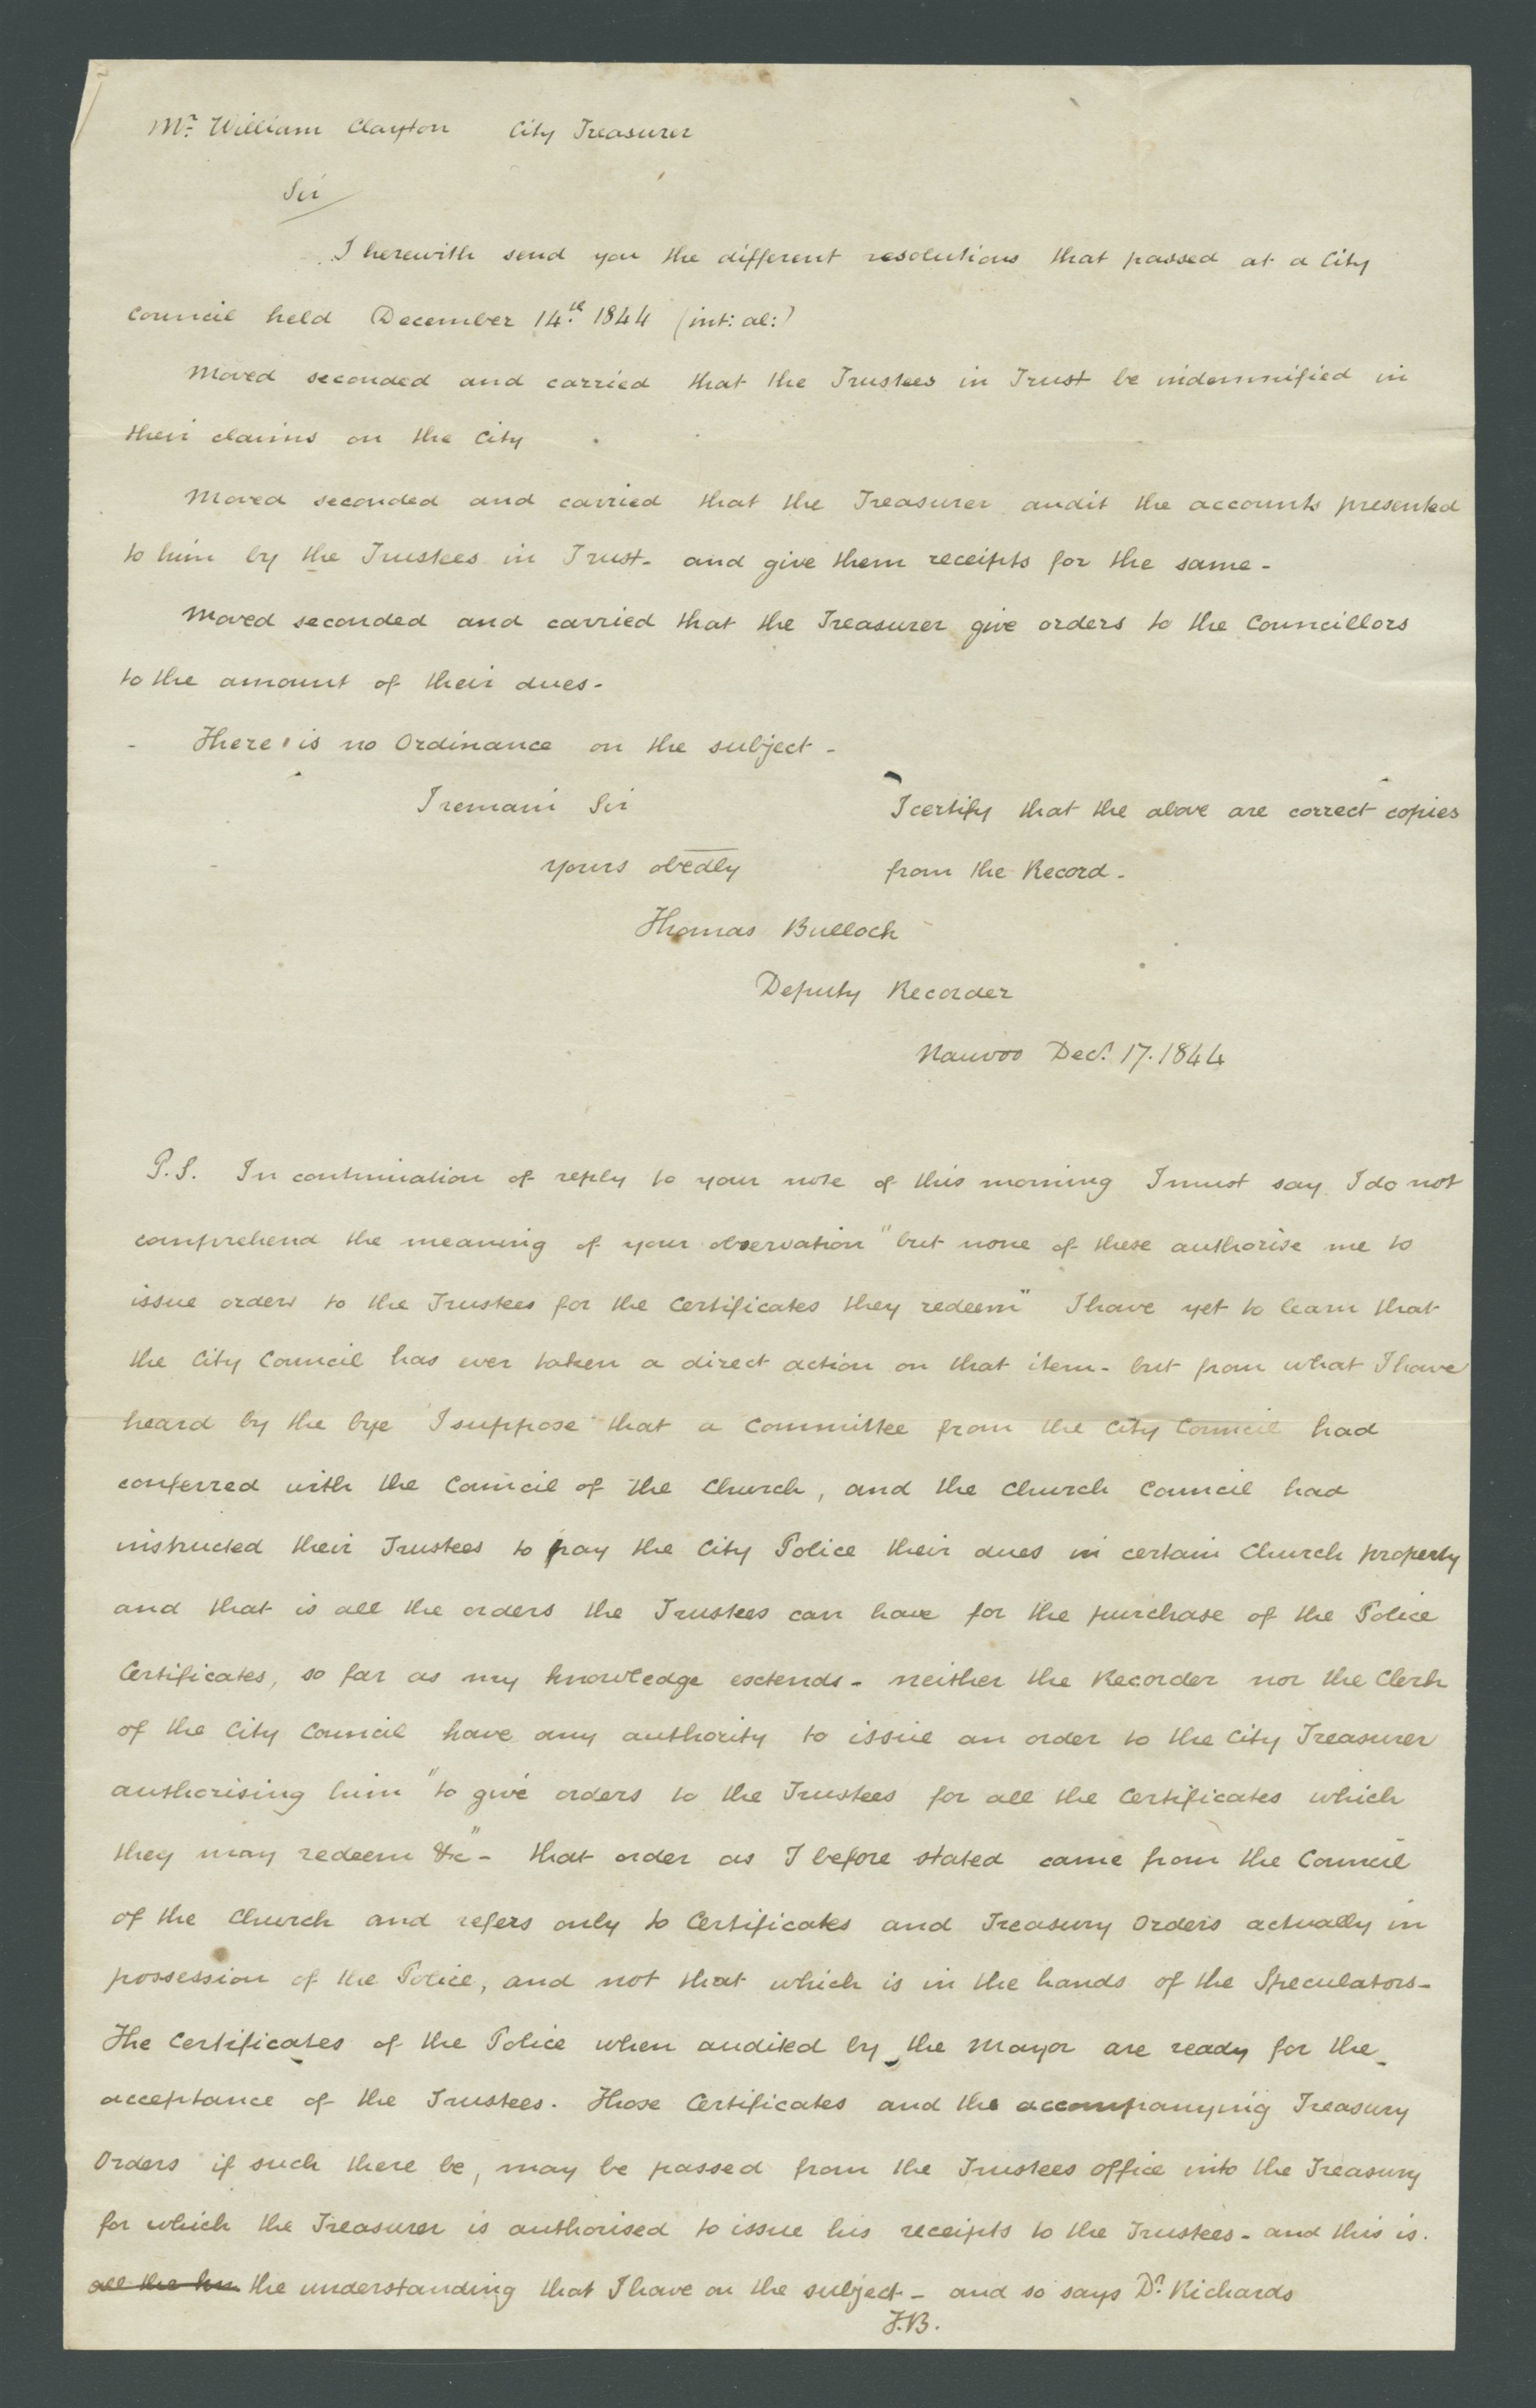 Mr. William Clayton City Treasurer
Sir
I herewith send you the different resolutions that passed at a City
Council held December 14th. 1844 (int: al:)
Moved seconded and carried that the Trustees in Trust be indemnified in
their claims on the City
Moved seconded and carried that the Treasurer audit the accounts presented
to him by the Trustees in Trust - and give them receipts for the same -
Moved seconded and carried that the Treasurer give orders to the Councillors
to the amount of their dues -
- There is no Ordinance on the subject -
I remain Sir I certify that the above are correct copies
yours obedly from the Record -
Thomas Bullock
Deputy Recorder
Nauvoo Decr. 17. 1844
P.S. In continuation of reply to your note of this morning I must say I do not
comprehend the meaning of your observation "but none of these authorise me to
issue orders to the Trustees for the Certificates they redeem" I have yet to learn that
the City Council has ever taken a direct action on that item - but from what I have
heard by the bye I suppose that a Committee from the City Council had
conferred with the Council of the Church, and the Church Council had
instructed their Trustees to pay the City Police their dues in certain Church property
and that is all the orders the Trustees can have for the purchase of the Police
Certificates, so far as my knowledge extends - neither the Recorder nor the Clerk
of the City Council have any authority to issue an order to the City Treasurer
authorising him "to give orders to the Trustees for all the Certificates which
they may redeem &c" - that order as I before stated came from the Council
of the Church and refers only to Certificates and Treasury Orders actually in
possession of the Police, and not that which is in the hands of the Speculators -
The Certificates of the Police when audited by the Mayor are ready for the
acceptance of the Trustees. Those Certificates and the accompanying Treasury
Orders if such there be, may be passed from the Trustees office into the Treasury
for which the Treasurer is authorised to issue his receipts to the Trustees - and this is.
all the the understanding that I have on the subject - and so says Dr. Richards
T.B.